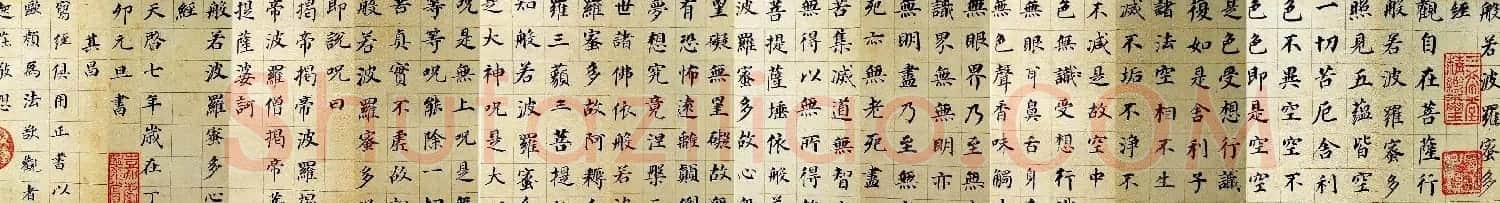 般若波羅蜜多
經
觀自在菩薩行
般若波羅蜜多
照見五蘊皆空
一切苦厄舍利
色不異空空不
色色即是空空
是色受想行識
復如是舍利子
諸法空相不生
滅不垢不淨不
不減是故空中
色無識受想行
無眼耳鼻舌身
無色聲香味觸
無眼界乃至無
識界無無明亦
無明盡乃至無
死亦無老死盡
苦集滅道無智
無得以無所得
菩提薩埵依般
波羅蜜多故心
罣礙無罣礙故
有恐怖遠離顛
夢想究竟涅槃
世諸佛依般若
羅蜜多故阿耨
羅三藐三菩提
知般若波羅蜜
是大神咒是大
是無上咒是無
等等咒能除一
苦真實不虛故
般若波羅蜜多
即說咒曰
揭帝揭帝波羅揭
帝波羅僧揭帝菩
提薩婆訶
般若波羅蜜多心
經
天啓七年歲在丁
卯元旦書
其昌
寫經俱用正書以
歐顏為法欲觀者